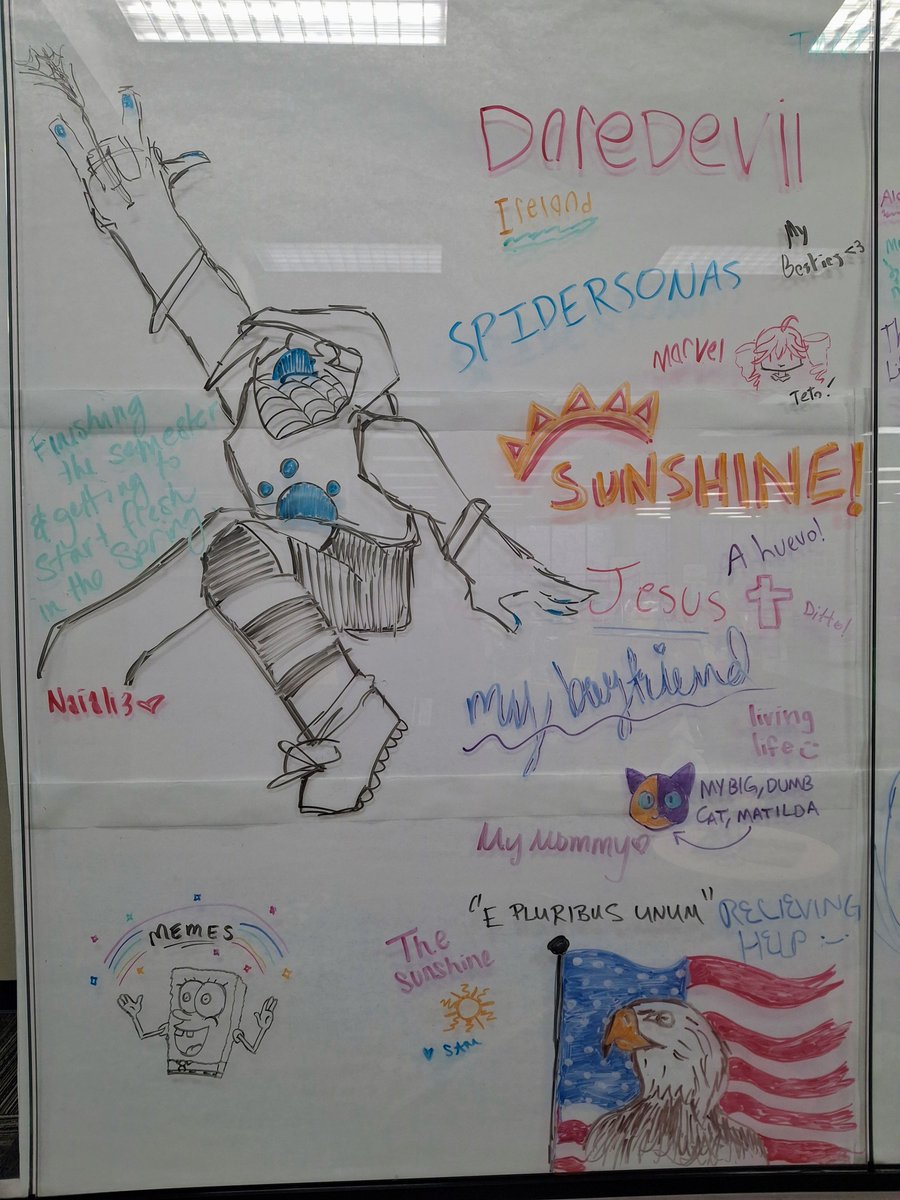 DareDevil
Ireland
My
Besties <3
SPIDERSONAS
Marvel
Teto!
Finishing
the semester
& getting to
start fresh
in the spring
SUNSHINE!
A huevo!
Jesus
Ditto!
my boyfriend
Natali3
living
life
MY BIG, DUMB
CAT, MATILDA
My Mommy
"E PLURIBUS UNUM"
RECIEVING
HELP
MEMES
The
Sunshine
SAM